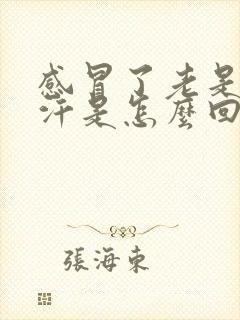 感冒了老是
汗是怎麼回
張海東